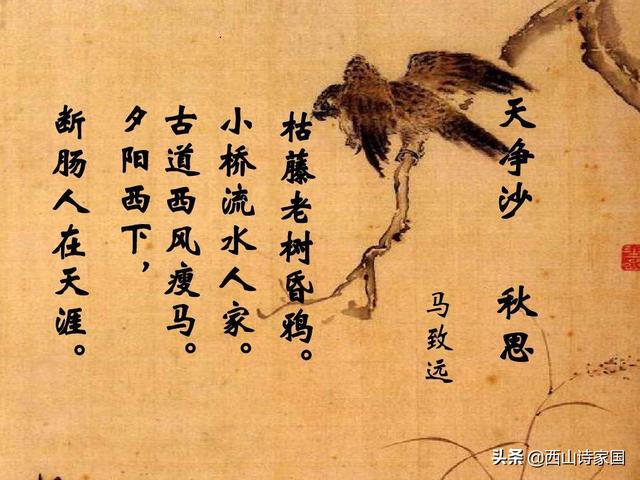 天争沙 秋思
马致远
枯藤老树昏鸦。
小桥流水人家。
古道西风瘦马。
夕阳西下，
断肠人在天涯。
头条 @西山诗家国